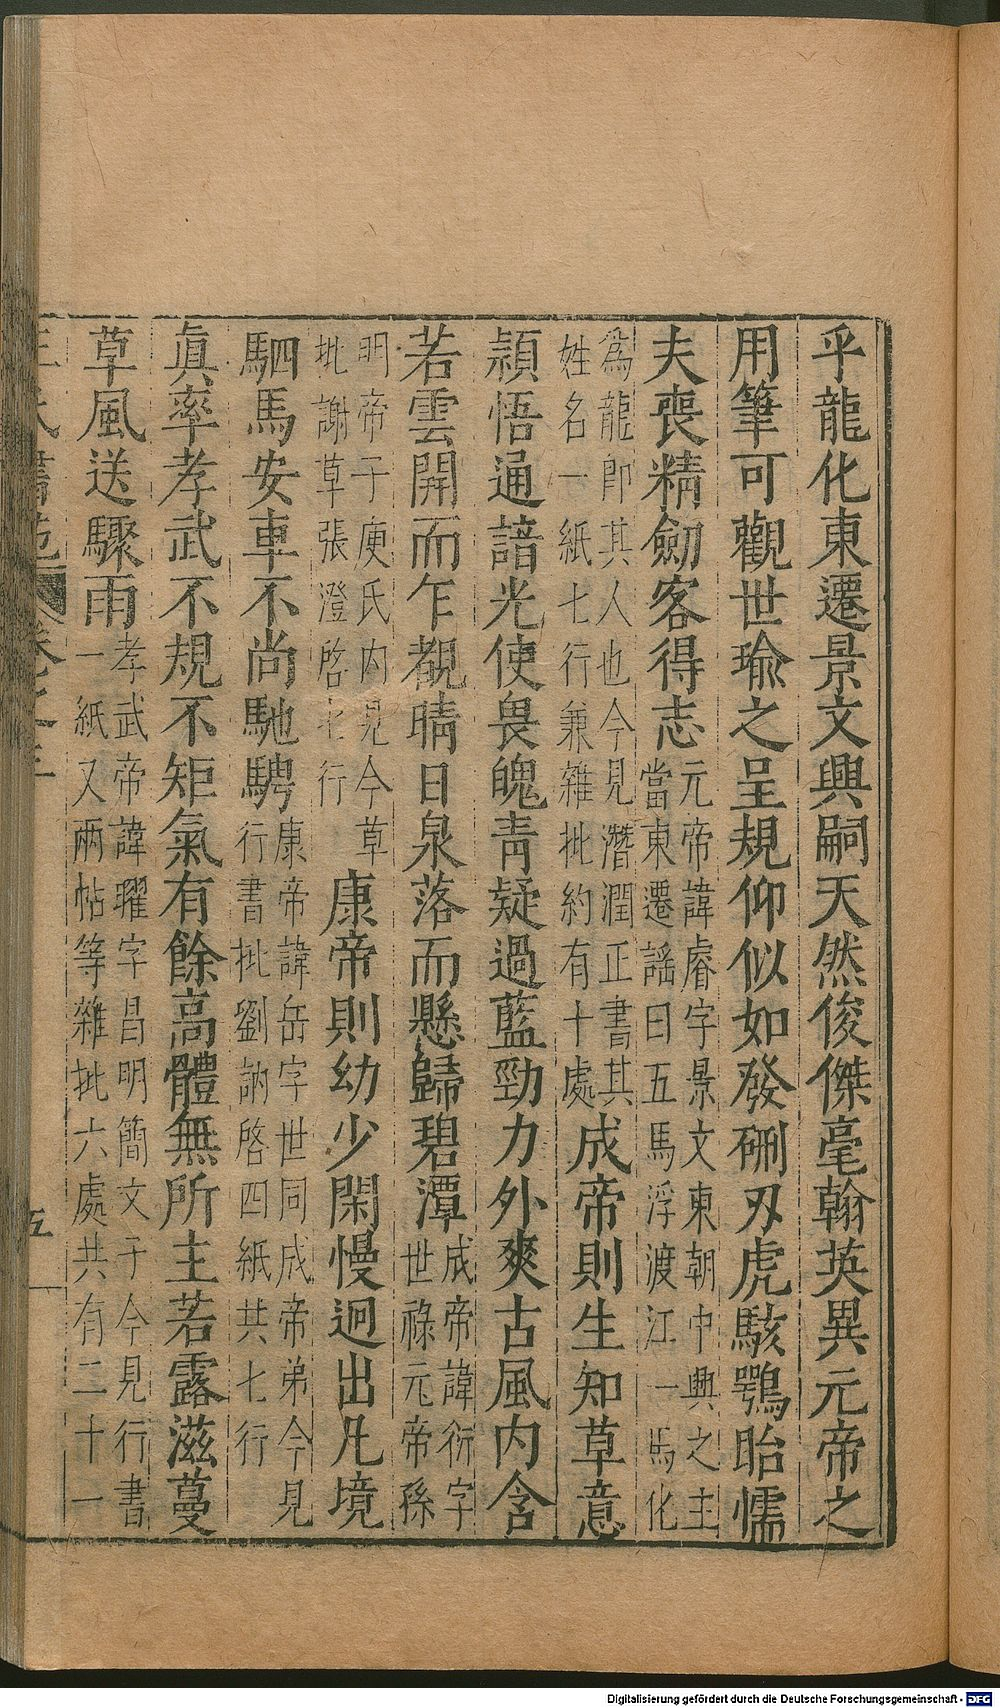 乎龍化東遷景文興嗣天然俊傑毫翰英異元帝之
用筆可觀世瑜之呈規仰似如發硎刃虎駭鶚眙懦
夫喪精劒客得志元帝諱睿字景文東朝中興之主
當東遷謡曰五馬浮渡江一馬化
為龍即其人也今見潛潤正書其
姓名一紙七行兼雜批約有十處成帝則生知草意
頴悟通諳光使畏魄青疑過藍勁力外爽古風内含
若雲開而乍覩晴日泉落而懸歸碧潭成帝諱衍字
世祿元帝孫
明帝子庾氏内見今草
批謝草張澄啓七行　康帝則幼少閑慢迥出凡境
駟馬安車不尚馳騁康帝諱岳字世同成帝弟今見
行書批劉訥啓四紙共七行
眞率孝武不規不矩氣有餘高體無所主若露滋蔓
草風送驟雨孝武帝諱曜字昌明簡文子今見行書
一紙又兩帖等雜批六處共有二十一
卷之三
五
Digitalisierung gefördert durch die Deutsche Forschungsgemeinschaft - DFG